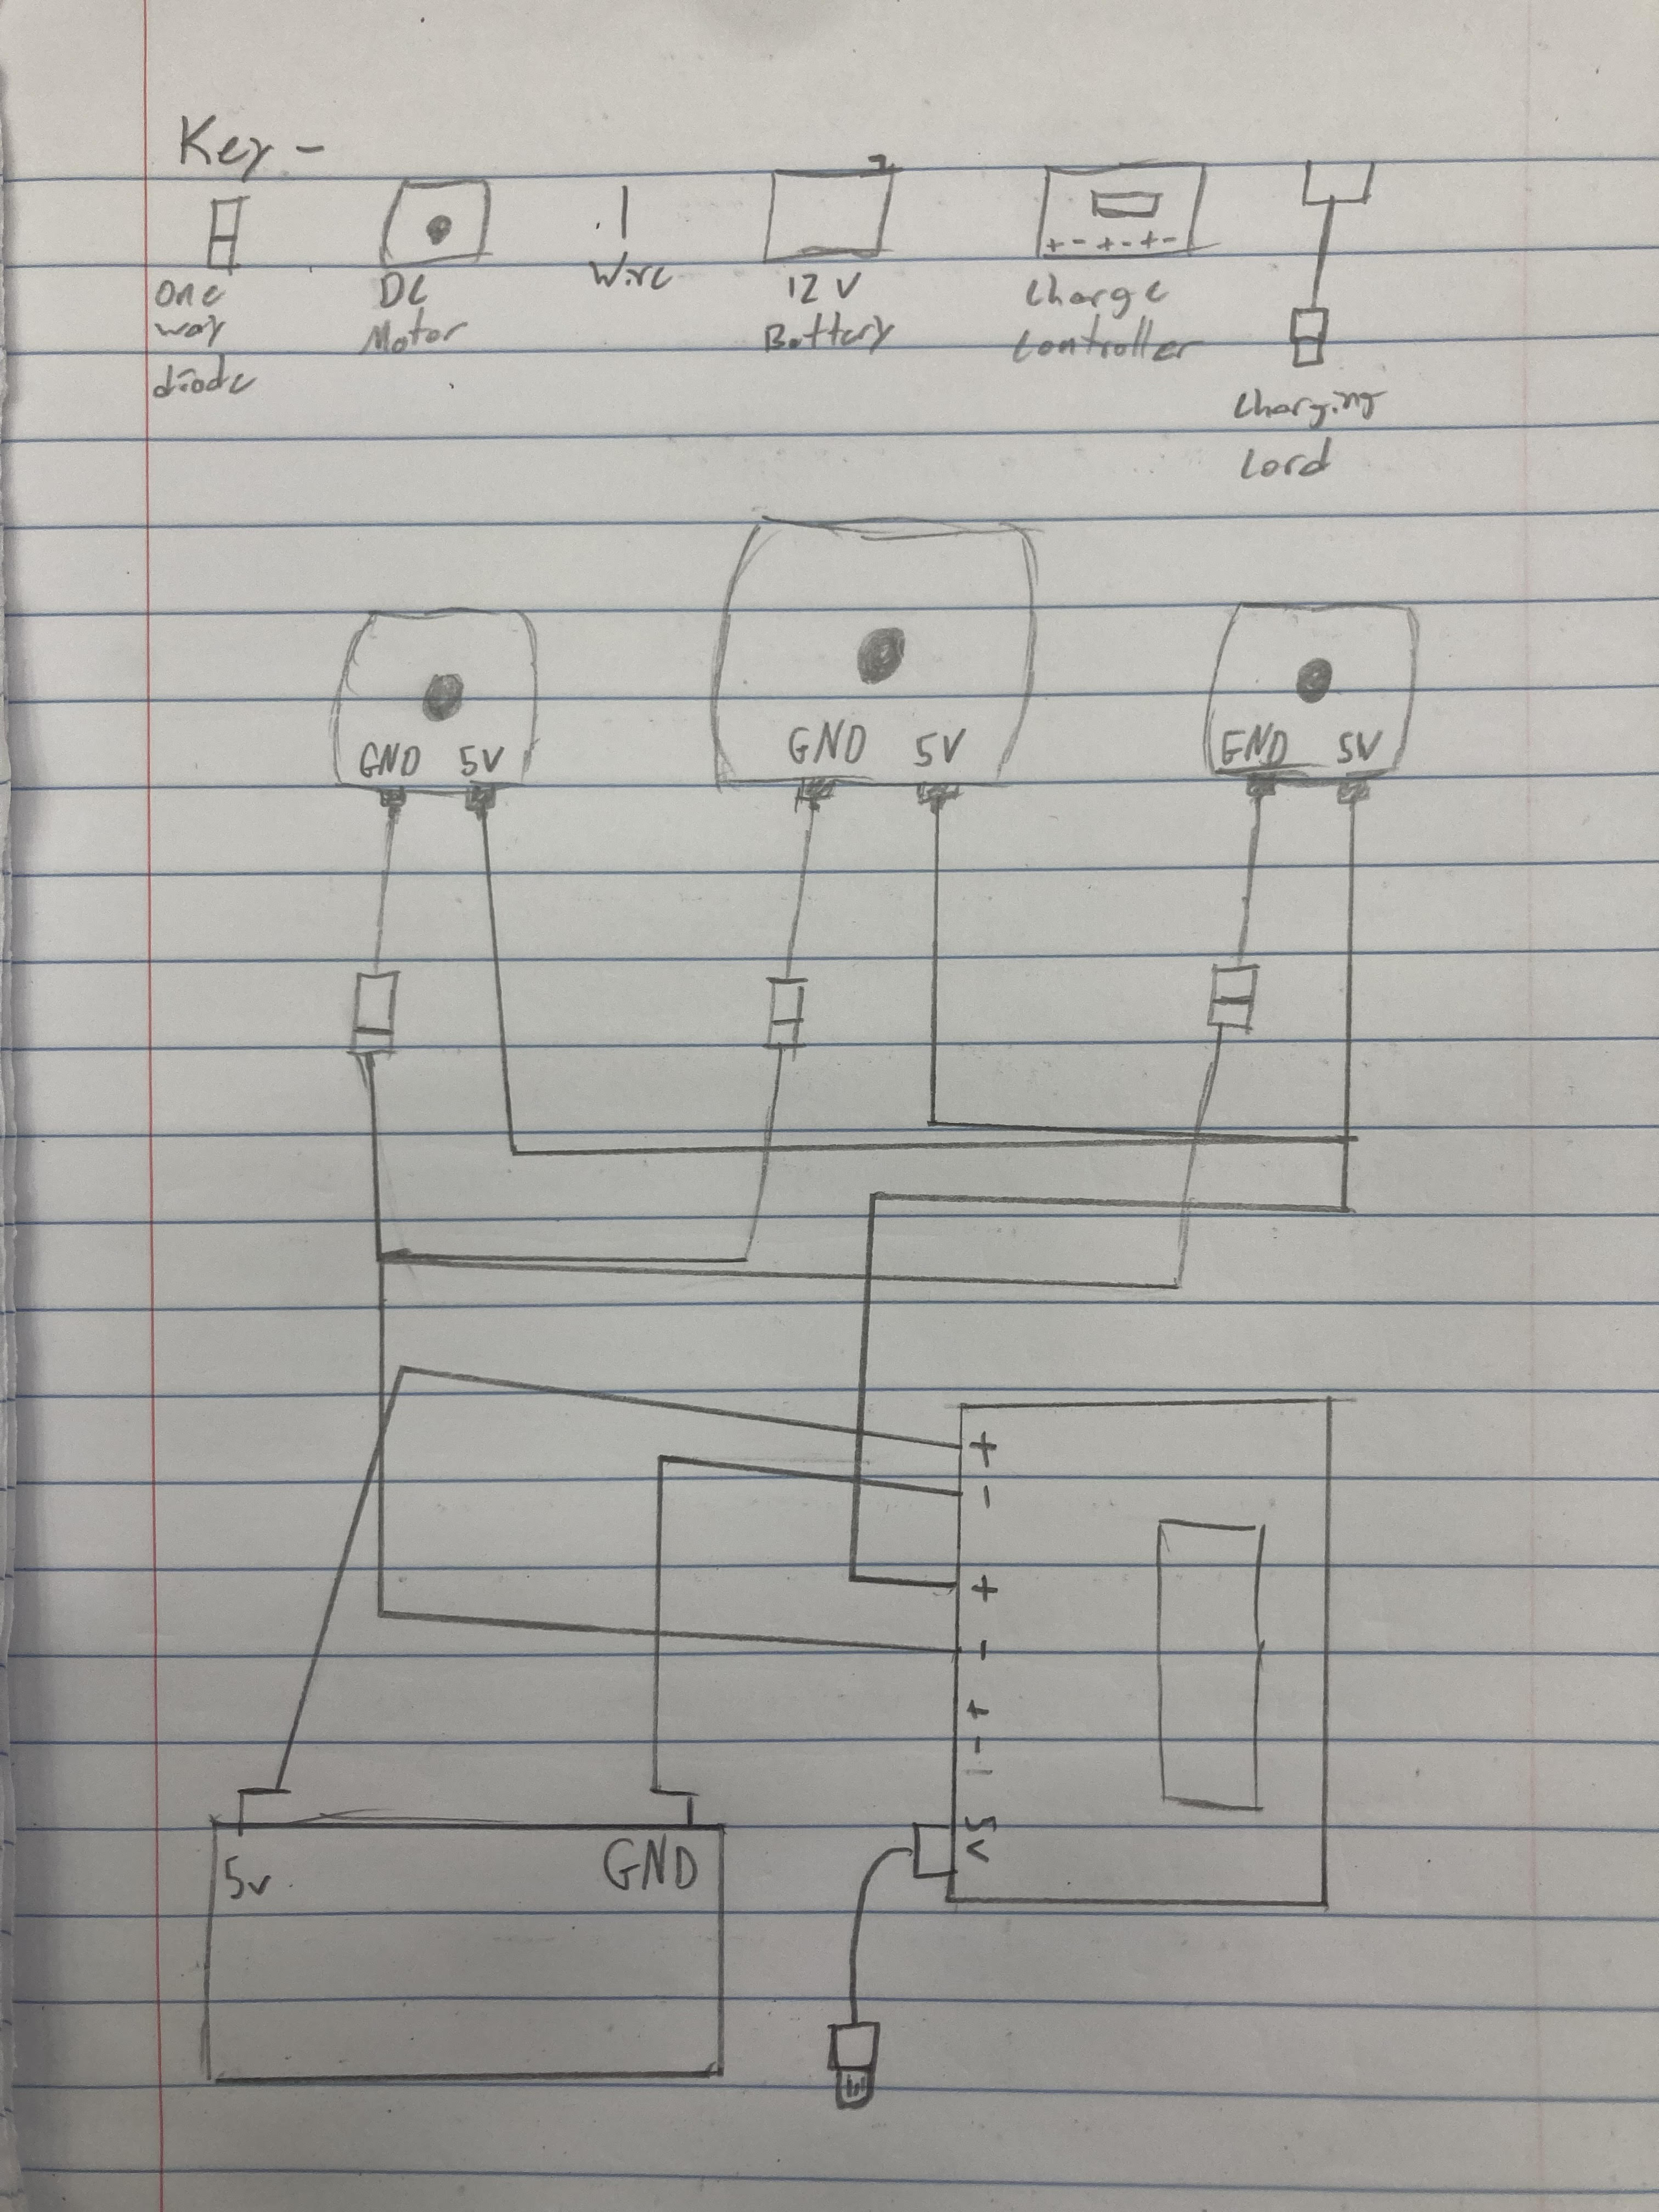 Key -
One
way
diode
DC
Motor
Wire
12 V
Battery
+ - + - + -
Charge
Controller
Charging
Cord
GND 5V
GND 5V
GND 5V
+
-
+
-
+
-
5V
5v
GND